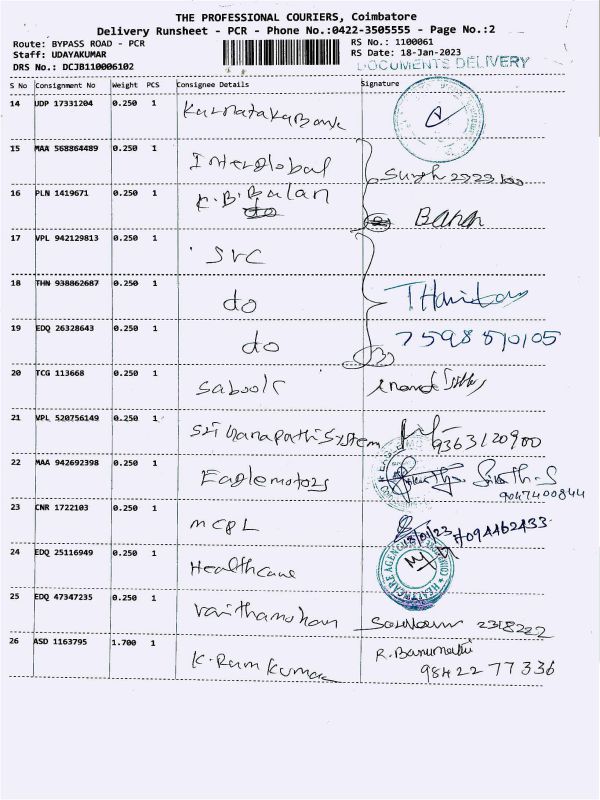 THE PROFESSIONAL COURIERS, Coimbatore
Delivery Runsheet - PCR - Phone No.:0422-3505555 - Page No.:2
Route: BYPASS ROAD - PCR RS No.: 1100061
Staff: UDAYAKUMAR RS Date: 18-Jan-2023
DRS No.: DCJB110006102 DOCUMENTS DELIVERY
S No Consignment No Weight PCS Consignee Details Signature
14 UDP 17331204 0.250 1 Karnataka Bank
15 MAA 568864489 0.250 1 Interglobal
16 PLN 1419671 0.250 1 K.B.Balan
17 VPL 942129813 0.250 1 SVC
18 THN 938862687 0.250 1 do
19 EDQ 26328643 0.250 1 do 7598870105
20 TCG 113668 0.250 1
21 VPL 520756149 0.250 1 Sri Ganapathi System 9363120900
22 MAA 942692398 0.250 1 Eaglemotors
9047400844
23 CNR 1722103 0.250 1 mcpL 7094462433
24 EDQ 25116949 0.250 1 Healthcare
25 EDQ 47347235 0.250 1 2318222
26 ASD 1163795 1.700 1 K.Ram Kumar R.Banumathi
98422 77336